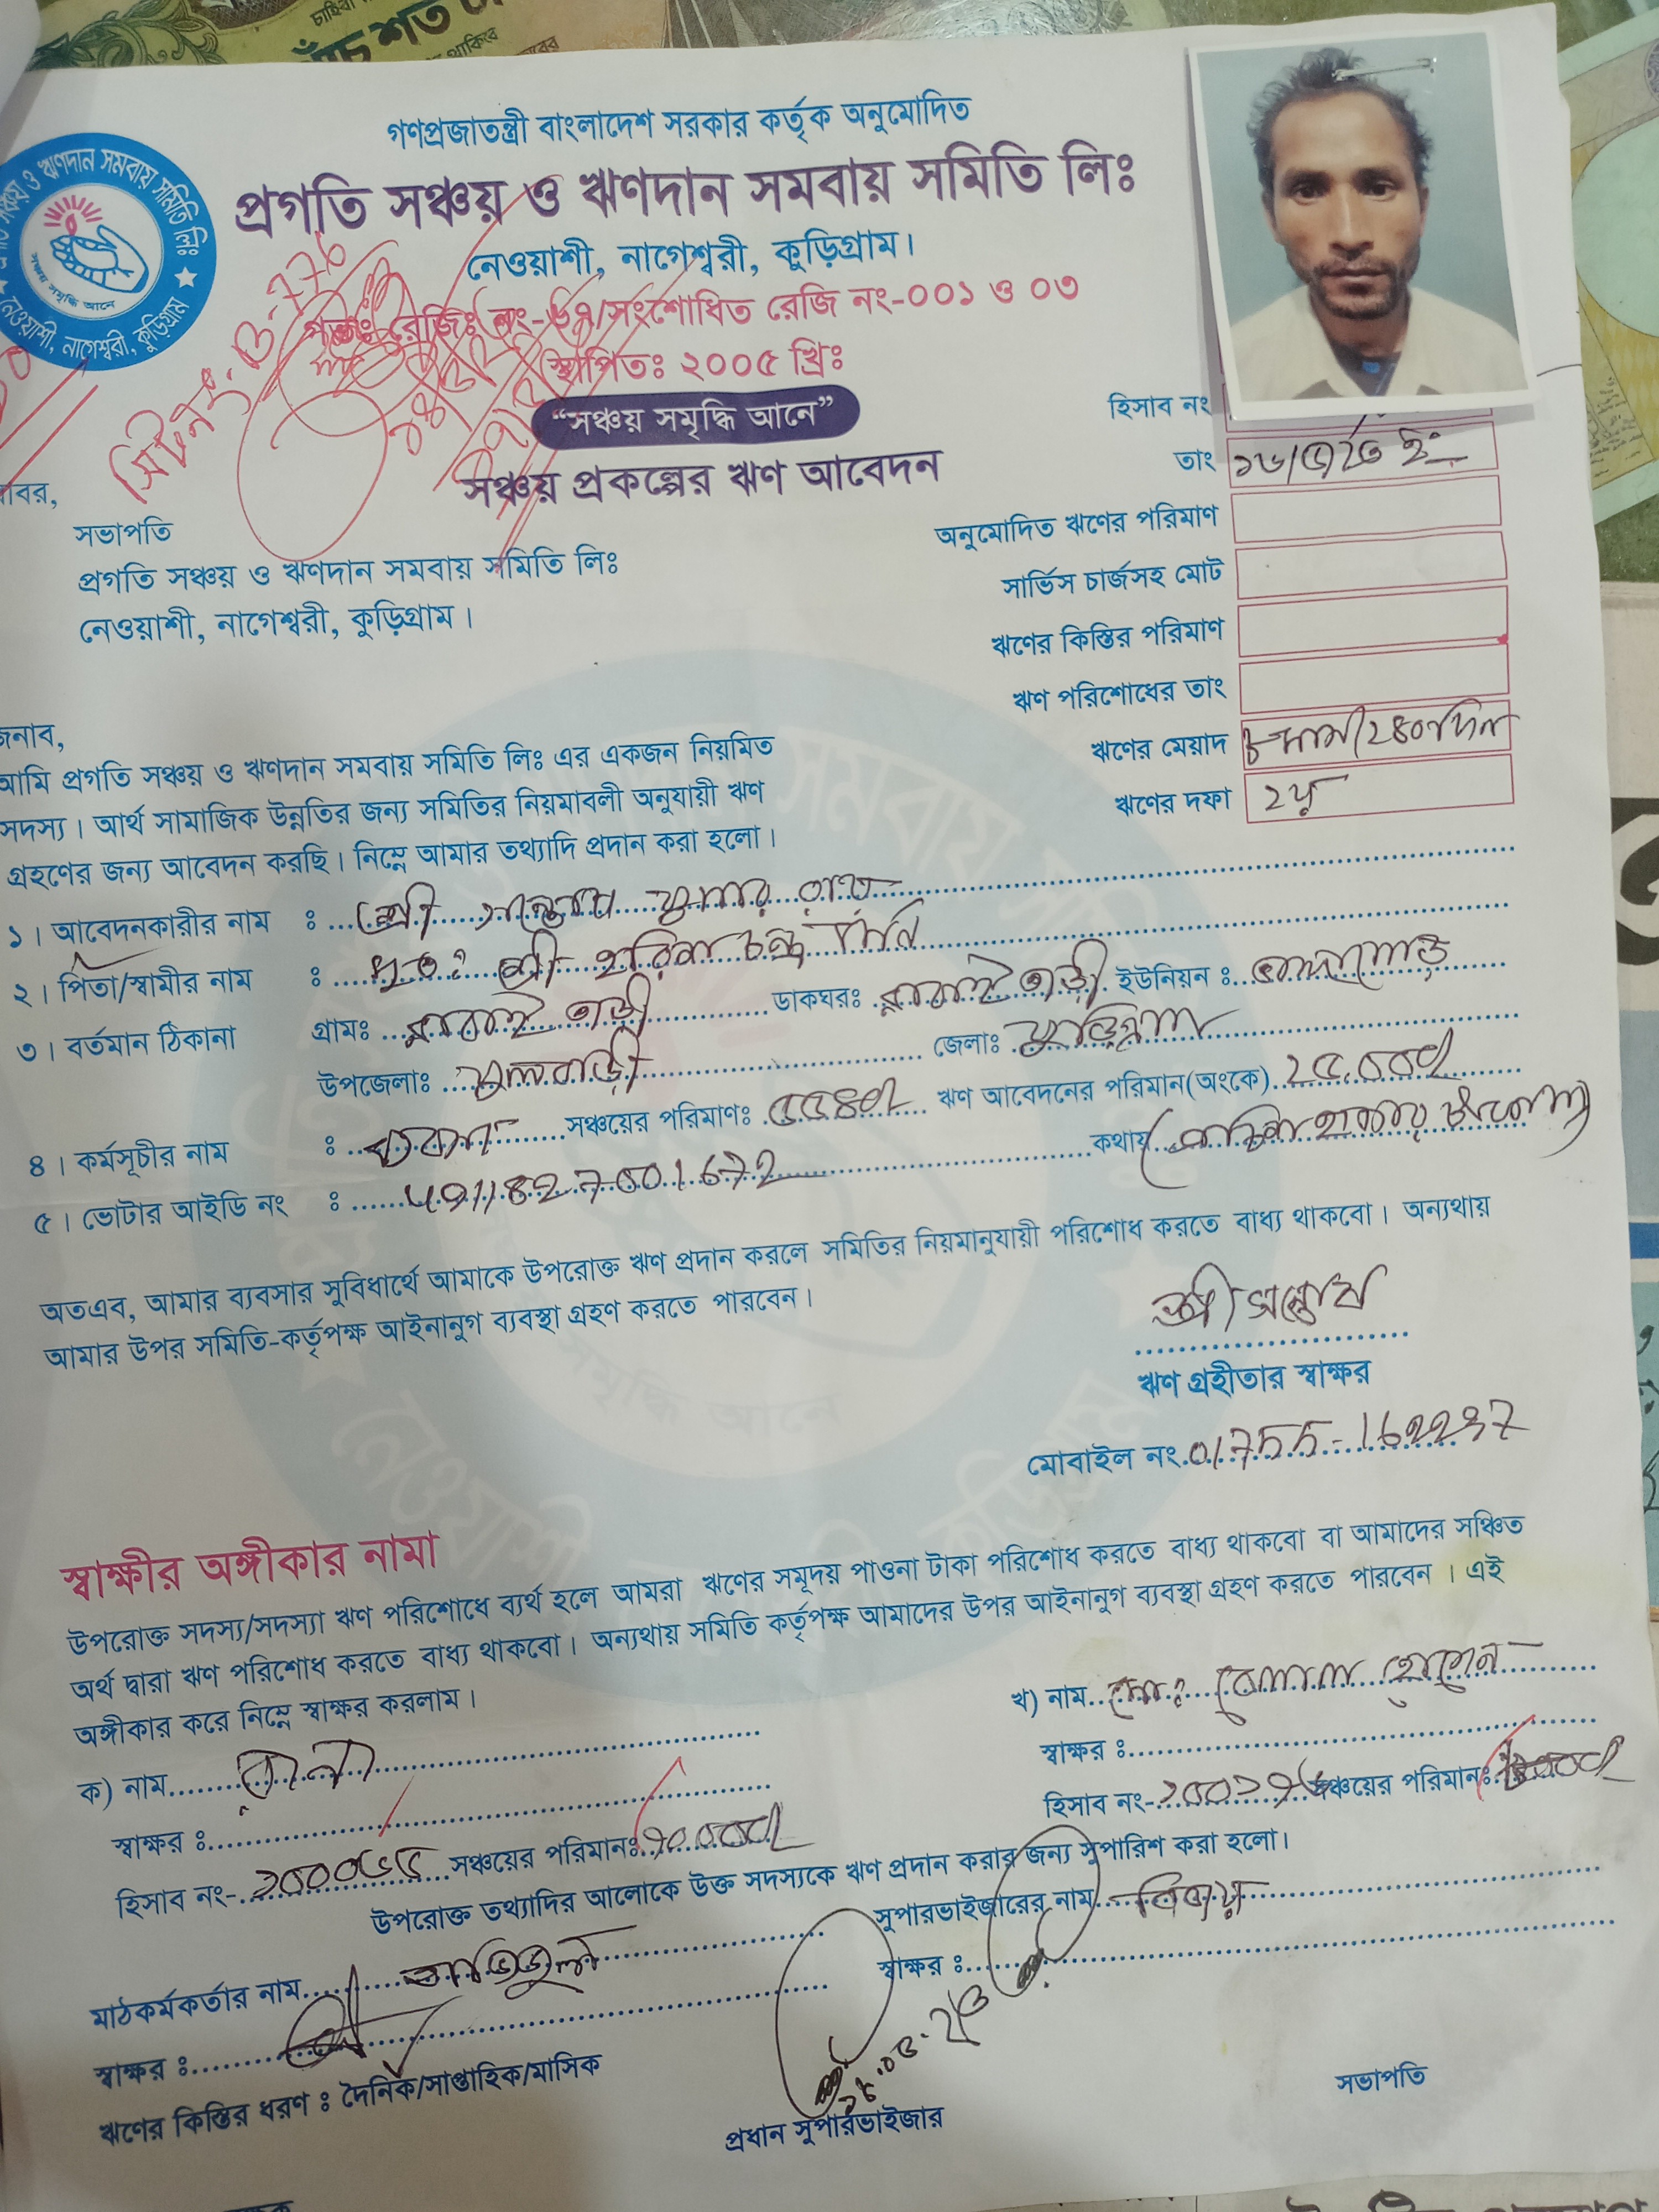 গণপ্রজাতন্ত্রী বাংলাদেশ সরকার কর্তৃক অনুমোদিত
প্রগতি সঞ্চয় ও ঋণদান সমবায় সমিতি লিঃ
নেওয়াশী, নাগেশ্বরী, কুড়িগ্রাম।
রেজিঃ নং-৬৭/সংশোধিত রেজি নং-০০১ ও ০৩
স্থাপিতঃ ২০০৫ খ্রিঃ
“সঞ্চয় সমৃদ্ধি আনে”
সঞ্চয় প্রকল্পের ঋণ আবেদন
হিসাব নং
তাং
অনুমোদিত ঋণের পরিমাণ
সার্ভিস চার্জসহ মোট
ঋণের কিস্তির পরিমাণ
ঋণ পরিশোধের তাং
ঋণের মেয়াদ ৮ মাস/২৪০ দিন
ঋণের দফা ২য়
সভাপতি
প্রগতি সঞ্চয় ও ঋণদান সমবায় সমিতি লিঃ
নেওয়াশী, নাগেশ্বরী, কুড়িগ্রাম।
জনাব,
আমি প্রগতি সঞ্চয় ও ঋণদান সমবায় সমিতি লিঃ এর একজন নিয়মিত
সদস্য। আর্থ সামাজিক উন্নতির জন্য সমিতির নিয়মাবলী অনুযায়ী ঋণ
গ্রহণের জন্য আবেদন করছি। নিম্নে আমার তথ্যাদি প্রদান করা হলো।
১। আবেদনকারীর নাম : শ্রী সন্তোষ কুমার রায়
২। পিতা/স্বামীর নাম : মৃতঃ শ্রী হরিশ চন্দ্র
৩। বর্তমান ঠিকানা গ্রামঃ ডাকঘরঃ ইউনিয়ন :
উপজেলাঃ ফুলবাড়ী জেলাঃ কুড়িগ্রাম
৪। কর্মসূচীর নাম : ব্যবসা সঞ্চয়ের পরিমাণঃ ৫৫৪০/ ঋণ আবেদনের পরিমান(অংকে) ২৫,০০০/
৫। ভোটার আইডি নং : কথায় (পঁচিশ হাজার টাকা মাত্র)
অতএব, আমার ব্যবসার সুবিধার্থে আমাকে উপরোক্ত ঋণ প্রদান করলে সমিতির নিয়মানুযায়ী পরিশোধ করতে বাধ্য থাকবো। অন্যথায়
আমার উপর সমিতি-কর্তৃপক্ষ আইনানুগ ব্যবস্থা গ্রহণ করতে পারবেন।
শ্রী সন্তোষ
ঋণ গ্রহীতার স্বাক্ষর
মোবাইল নং 01755-162237
স্বাক্ষীর অঙ্গীকার নামা
উপরোক্ত সদস্য/সদস্যা ঋণ পরিশোধে ব্যর্থ হলে আমরা ঋণের সমূদয় পাওনা টাকা পরিশোধ করতে বাধ্য থাকবো বা আমাদের সঞ্চিত
অর্থ দ্বারা ঋণ পরিশোধ করতে বাধ্য থাকবো। অন্যথায় সমিতি কর্তৃপক্ষ আমাদের উপর আইনানুগ ব্যবস্থা গ্রহণ করতে পারবেন। এই
অঙ্গীকার করে নিম্নে স্বাক্ষর করলাম।
ক) নাম
স্বাক্ষর :
হিসাব নং- সঞ্চয়ের পরিমানঃ
খ) নাম মোঃ বেলাল হোসেন
স্বাক্ষর :
হিসাব নং- সঞ্চয়ের পরিমানঃ
উপরোক্ত তথ্যাদির আলোকে উক্ত সদস্যকে ঋণ প্রদান করার জন্য সুপারিশ করা হলো।
মাঠকর্মকর্তার নাম
স্বাক্ষর :
সুপারভাইজারের নাম বিজয়
স্বাক্ষর :
ঋণের কিস্তির ধরণ : দৈনিক/সাপ্তাহিক/মাসিক
প্রধান সুপারভাইজার
সভাপতি